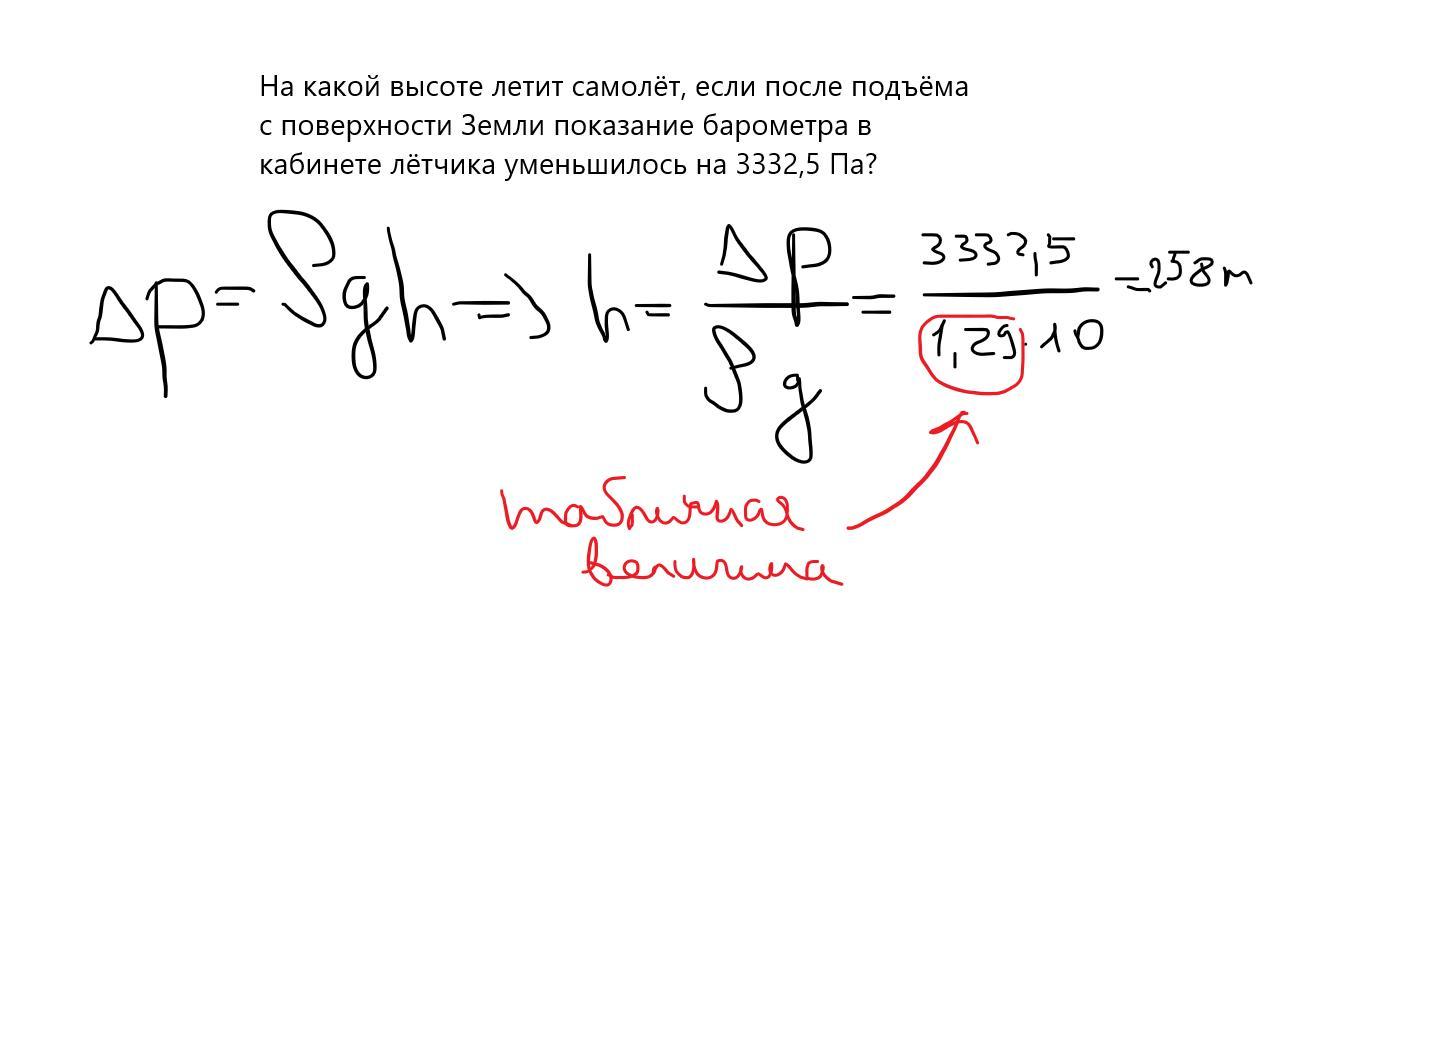 На какой высоте летит самолёт, если после подъёма
с поверхности Земли показание барометра в
кабинете лётчика уменьшилось на 3332,5 Па?
Δp = ρgh => h = Δp / ρg = 3332,5 / 1,29·10 = 258 m
табличная
величина